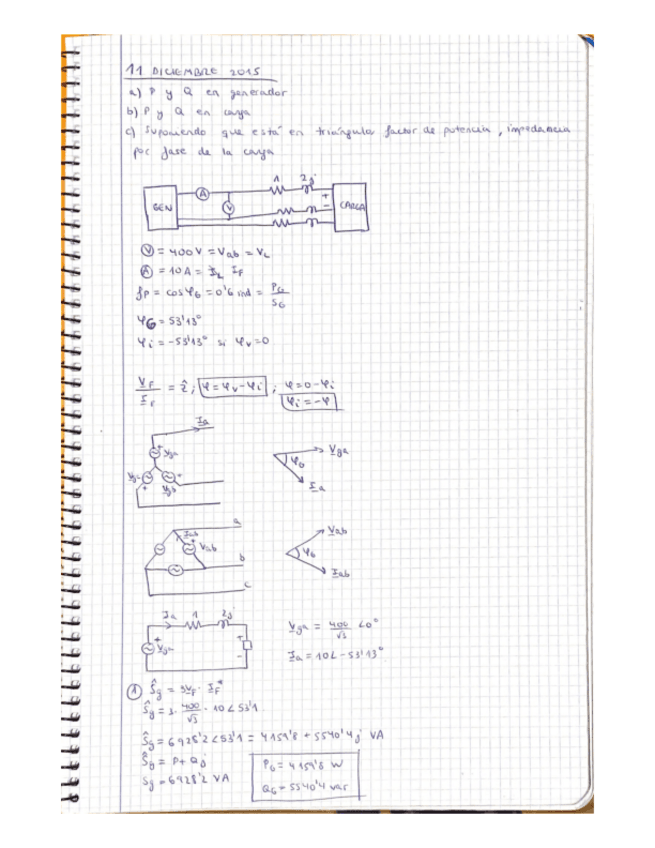 11 DICIEMBRE 2015
a) P y Q en generador
b) P y Q en carga
c) Suponiendo que está en triángulo, factor de potencia, impedancia
por fase de la carga
1 2j
A
V
GEN
+
-
CARGA
V = 400 V = Vab = VL
A = 10 A = IL IF
fP = cos φG = 0'6 ind = PG / SG
φG = 53'13°
φi = -53'13° si φv = 0
VF / IF = Ẑ ; φ = φv - φi ; φ = 0 - φi
φi = -φ
Ia
+
Vga
Vgc
Vgb
+
+
Vga
φG
Ia
a
Iab
Vab
b
c
Vab
φG
Iab
Ia 1 2j
+
Vga
+
-
Vga = 400/√3 ∠0°
Ia = 10∠-53'13°
1 Ŝg = 3VF · IF*
Ŝg = 3 · 400/√3 · 10∠53'1
Ŝg = 6928'2∠53'1 = 4159'8 + 5540'4j VA
Ŝg = P + Qj
Sg = 6928'2 VA
PG = 4159'8 W
QG = 5540'4 var